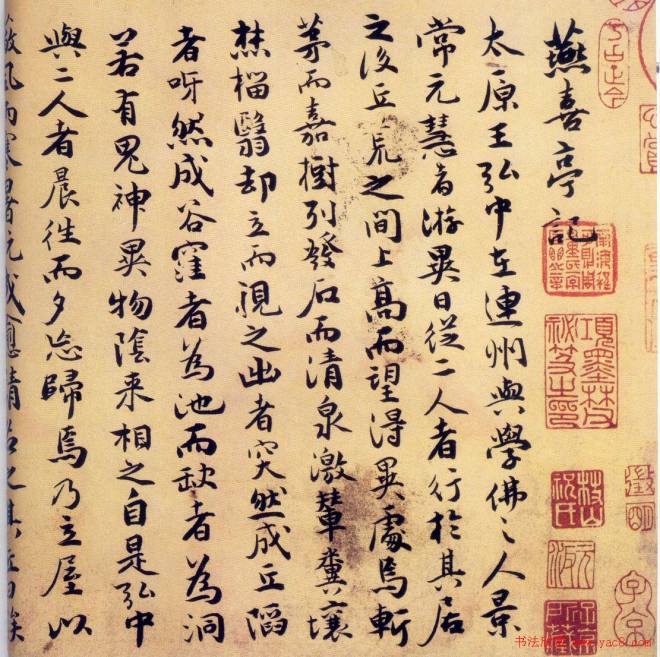 燕喜亭記
太原王弘中在連州與學佛之人景
常元慧者游異日從二人者行於其居
之後丘荒之間上高而望得異處焉斬
茅而嘉樹列發石而清泉激輦糞壤
焚椔翳却立而視之出者突然成丘陷
者呀然成谷窪者為池而缺者為洞
若有鬼神異物陰来相之自是弘中
與二人者晨往而夕忘歸焉乃立屋以
風雨寒暑既成愈請名之其丘曰竢
項墨林父秘笈之印
子京